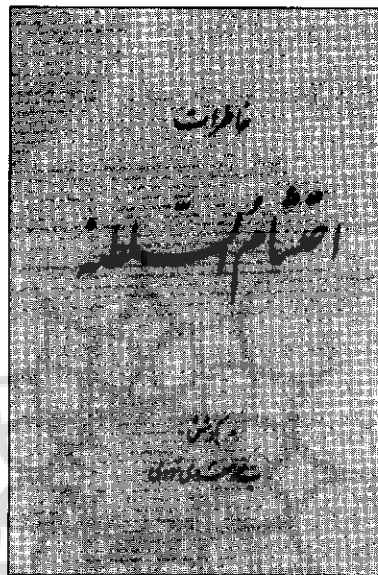 خاطرات
احتشام السلطنه
بکوشش